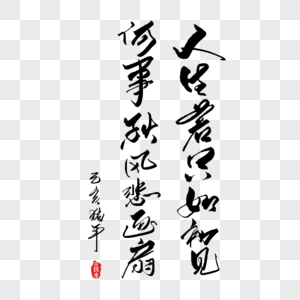 人生若只如初見
何事秋风悲画扇
己亥猪年